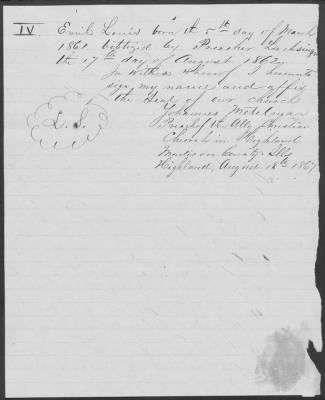 IV
Emil Louis born the 5th day of March
1861 battized by Preacher
the 17th day of August 1862.
In witness whereof I hereunto
sign my name and affix
the Seal of our church
L. S.
Johannes
Christian
Church in Highland
Madison County Ills
Highland, August 18th 1867